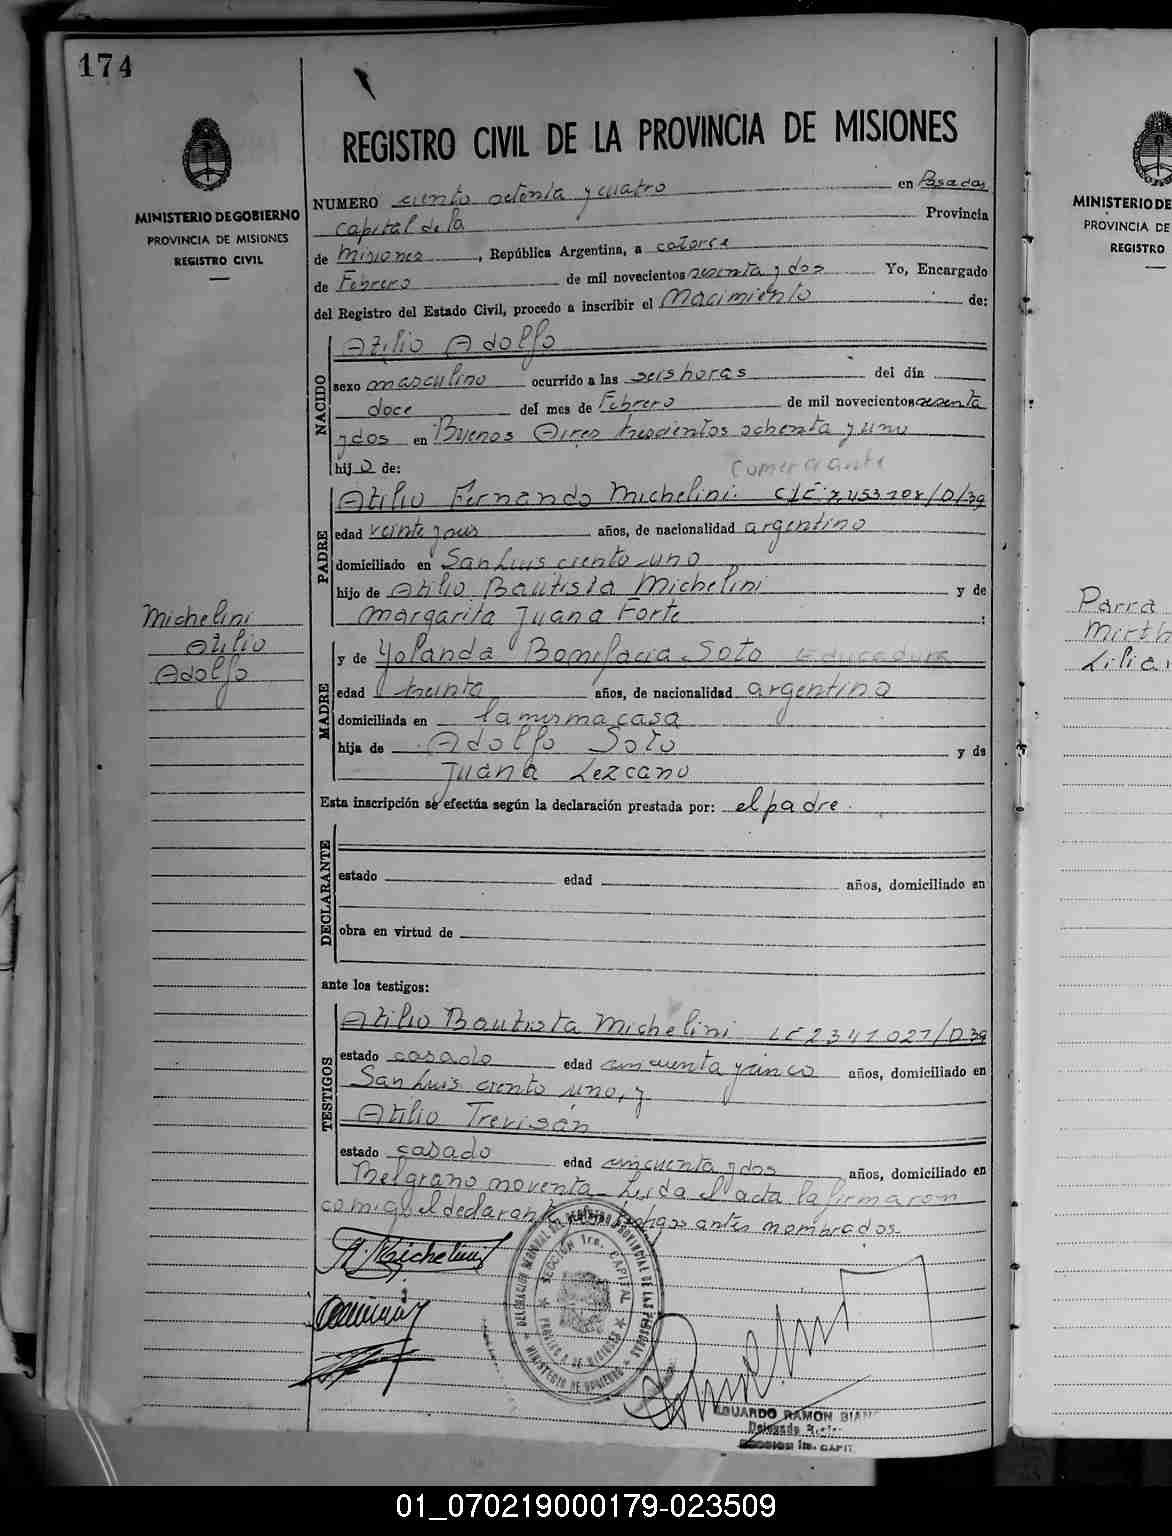 174
MINISTERIO DE GOBIERNO
PROVINCIA DE MISIONES
REGISTRO CIVIL
Michelini
Atilio
Adolfo
REGISTRO CIVIL DE LA PROVINCIA DE MISIONES
NUMERO ciento octenta y cuatro en Posadas
capital de la Provincia
de Misiones, República Argentina, a catorce
de Febrero de mil novecientos sesenta y dos Yo, Encargado
del Registro del Estado Civil, procedo a inscribir el Nacimiento de:
NACIDO
Atilio Adolfo
sexo masculino ocurrido a las seis horas del día
doce del mes de Febrero de mil novecientos sesenta
y dos en Buenos Aires trescientos ochenta y uno
hijo de:
comerciante
PADRE
Atilio Fernando Michelini. 7.453.108/D/39
edad años, de nacionalidad argentino
domiciliado en San Luis ciento uno
hijo de Atilio Bautista Michelini y de
Margarita Juana Forte :
MADRE
y de Yolanda Bonifacia Soto educadora
edad treinta años, de nacionalidad argentina
domiciliada en la misma casa
hija de Adolfo Soto y de
Juana Lezcano
Esta inscripción se efectúa según la declaración prestada por: el padre.
DECLARANTE
estado edad años, domiciliado en
obra en virtud de
ante los testigos:
TESTIGOS
Atilio Bautista Michelini LE 2341027/D 39
estado casado edad cincuenta y cinco años, domiciliado en
San Luis ciento uno, y
Atilio Trevisán
estado casado edad cincuenta y dos años, domiciliado en
Belgrano noventa Leida el acta la firmaron
comigo el declarante testigos antes nombrados.
A. Michelini
DELEGACION REGIONAL DEL REGISTRO PROVINCIAL DE LAS PERSONAS
SECCION 1ra. CAPITAL
PROVINCIA DE MISIONES
MINISTERIO DE GOBIERNO
EDUARDO RAMON
SECCION 1ra. CAPIT
MINISTERIO DE
PROVINCIA DE
REGISTRO
Parra
Mirth
Lilian
01_070219000179-023509